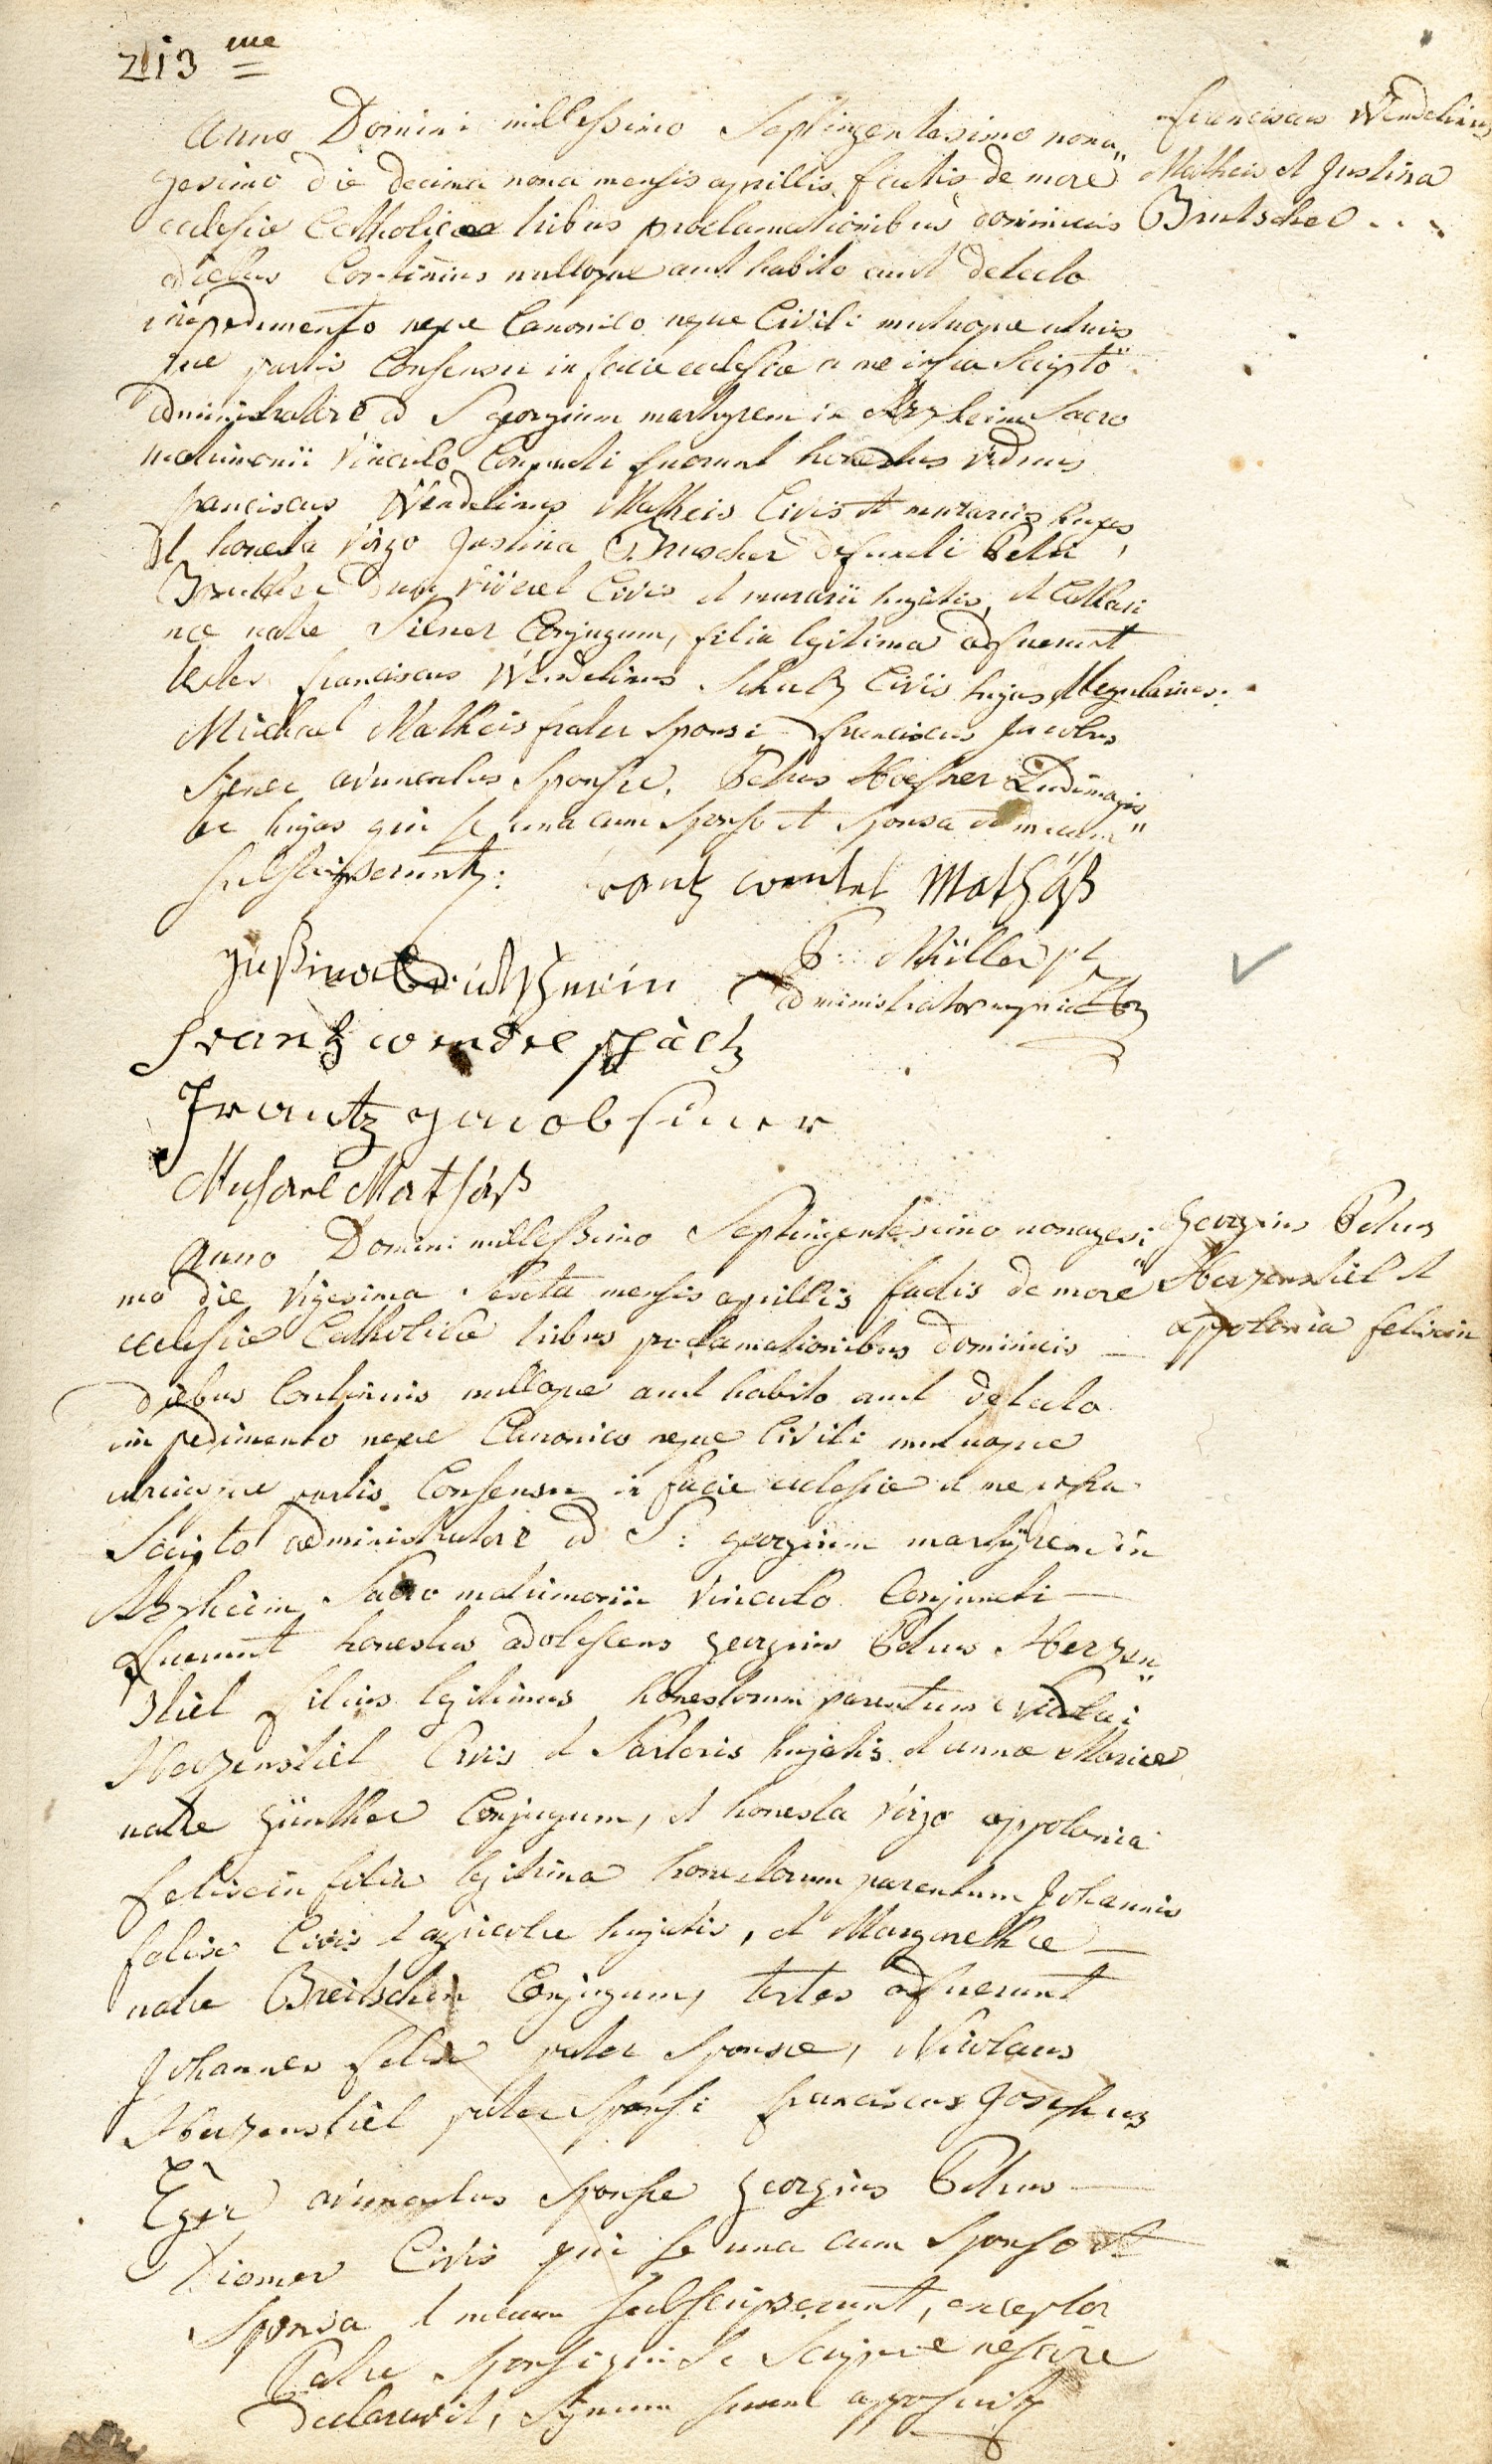 213 me
Anno Domini millessimo Septingentesimo nona"
gesimo die decima nona mensis aprillis factis de more
ecclesiæ Catholicae tribus proclamationibus dominicis
diebus Continuis nulloque aut habito aut detecto
impedimento neque Canonico neque Civili mutuoque utrius
que partis Consensu in facie ecclesiæ a me infra Scripto
administratore ad S georgium martyrem in Arzheim Sacro
matrimonii Vinculo Conjuncti fuerunt honestus Viduus
franciscus Wendelinus Matheis Civis et murarius hujas
et honesta Virgo Justina defuncti Petri
dum Civis et murarii hujatis, et Cathari
næ natæ Siener Conjugum, filia legitima adfuerunt
testes franciscus Wendelinus Civis hujas
Michael Matheis frater Sponsi franciscus Jacobus
Siener avunculus Sponsæ, Petrus Hoffner Ludimagis
ter hujas qui se una cum Sponso et Sponsa et mecum"
Subscripserunt:
frantz wentel Mathäß
P: Müller p t
administrator
Frantz wendel
Frantz jacob siener
Michael Mathäß
franciscus Wendelinus
Matheis et Justina
Brutscher . . .
Anno Domini millessimo Septingentesimo nonagesi
mo die Vigesima Sexta mensis aprillis factis de more
ecclesiæ Catholicæ tribus proclamationibus dominicis —
diebus Continuis nulloque aut habito aut detecto
impedimento neque Canonico neque Civili mutuoque
utriusque partis Consensu in facie ecclesiæ a me infra
Scripto administratore ad S: georgium martyrem in
Arzheim Sacro matrimonii Vinculo Conjuncti —
fuerunt honestus adolescens georgius Petrus Herzen"
stiel filius legitimus honestorum parentum Nicolai
Herzenstiel Civis et Sartoris hujatis et annæ Mariæ
natæ günther Conjugum, et honesta Virgo appolonia
felixin filia legitima honestorum parentum Johannis
felix Civis et agricolæ hujatis, et Margarethæ —
natæ Conjugum, testes adfuerunt
Johannes felix pater Sponsæ, Nicolaus
Herzenstiel pater Sponsi franciscus Josephus
avunculus Sponsæ georgius Petrus —
Civis qui se una cum Sponso et
Sponsa et mecum Subscripserunt, exceptor
Patre Sponsi qui se Scribere nescire
declaravit, Signum suum apposuit
georgius Petrus
Herzenstiel et
appolonia felixin